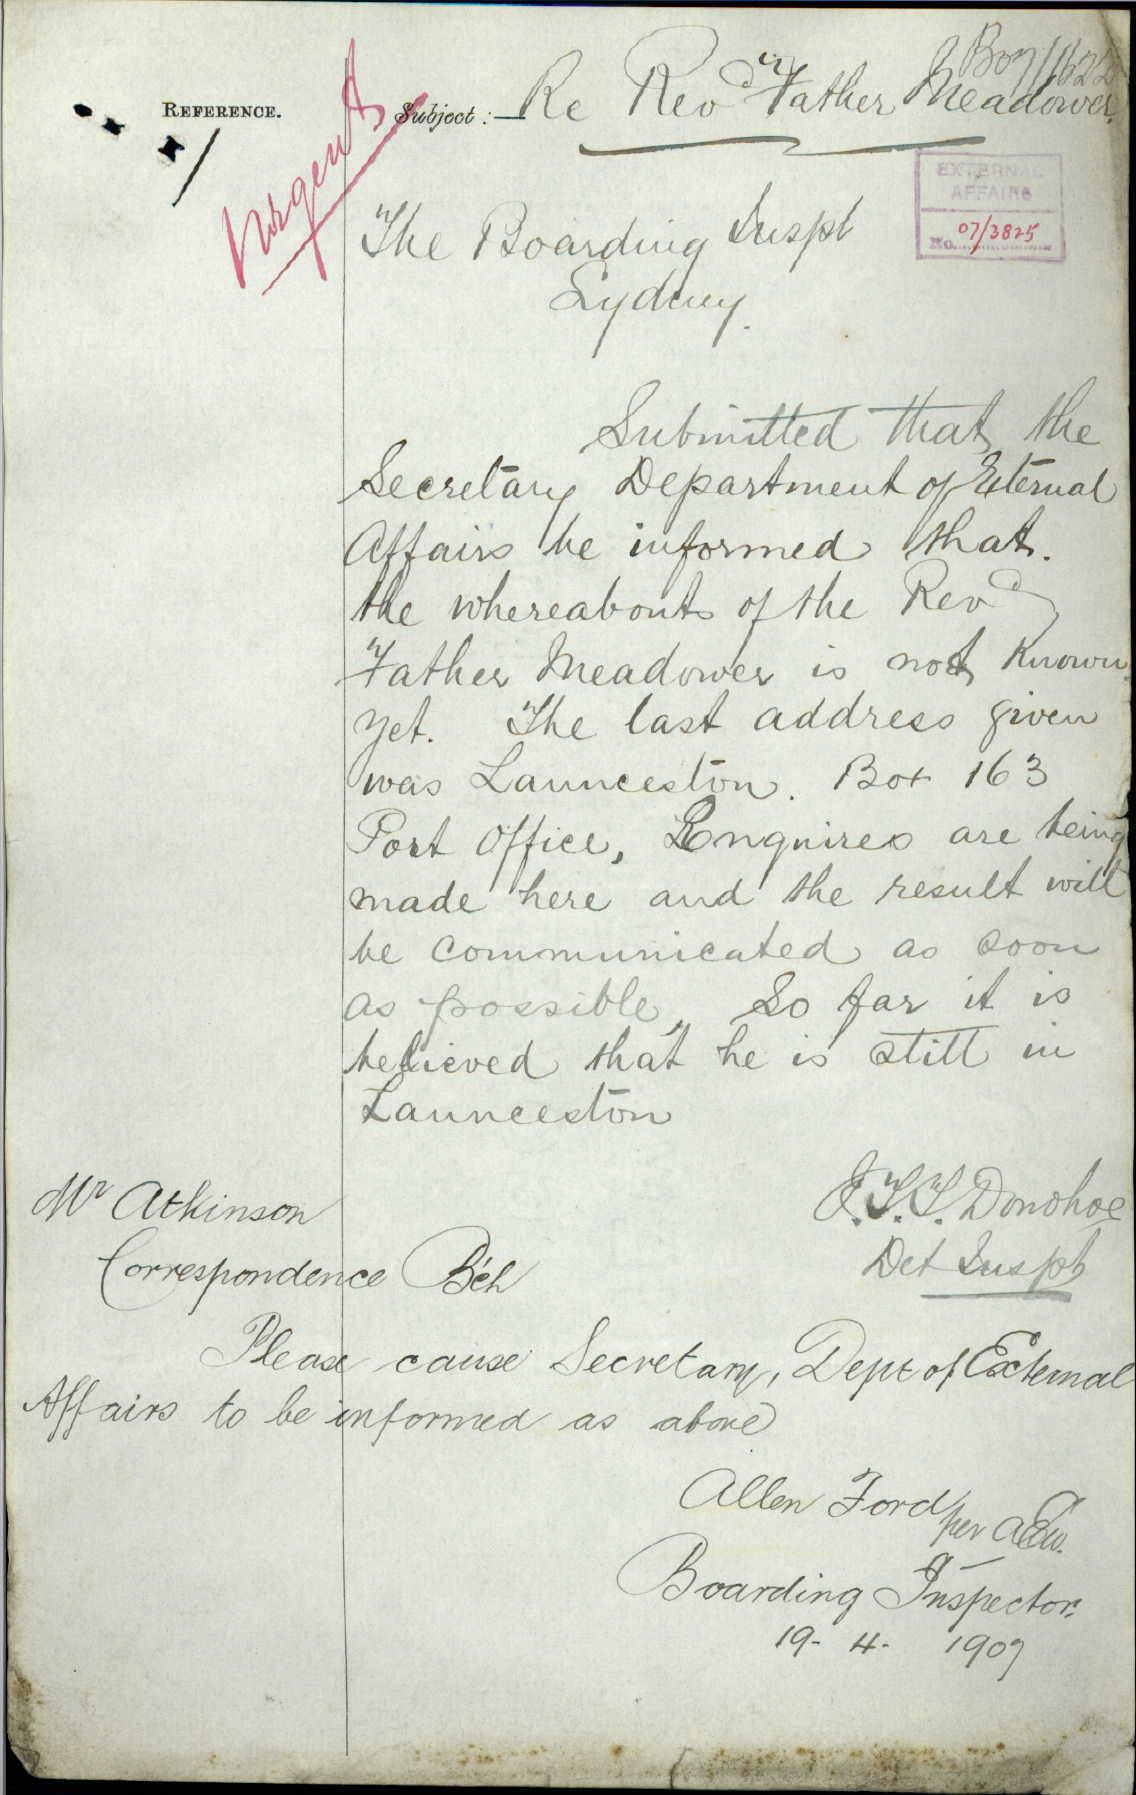 Boy 1622
REFERENCE. Subject :— Re Revd Father Meadower.
Urgent
EXTERNAL
AFFAIRS
No. 07/3825
The Boarding Inspt
Sydney.
Submitted that the
Secretary Department of External
Affairs be informed that.
the whereabouts of the Revd
Father Meadower is not known
yet. The last address given
was Launceston. Box 163
Post Office, Enquires are being
made here and the result will
be communicated as soon
as possible, So far it is
believed that he is still in
Launceston
J.T.T. Donohoe
Det Inspt
Mr Atkinson
Correspondence Bch
Please cause Secretary, Dept of External
Affairs to be informed as above
Allen Ford
per
Boarding Inspector.
19- 4- 1907